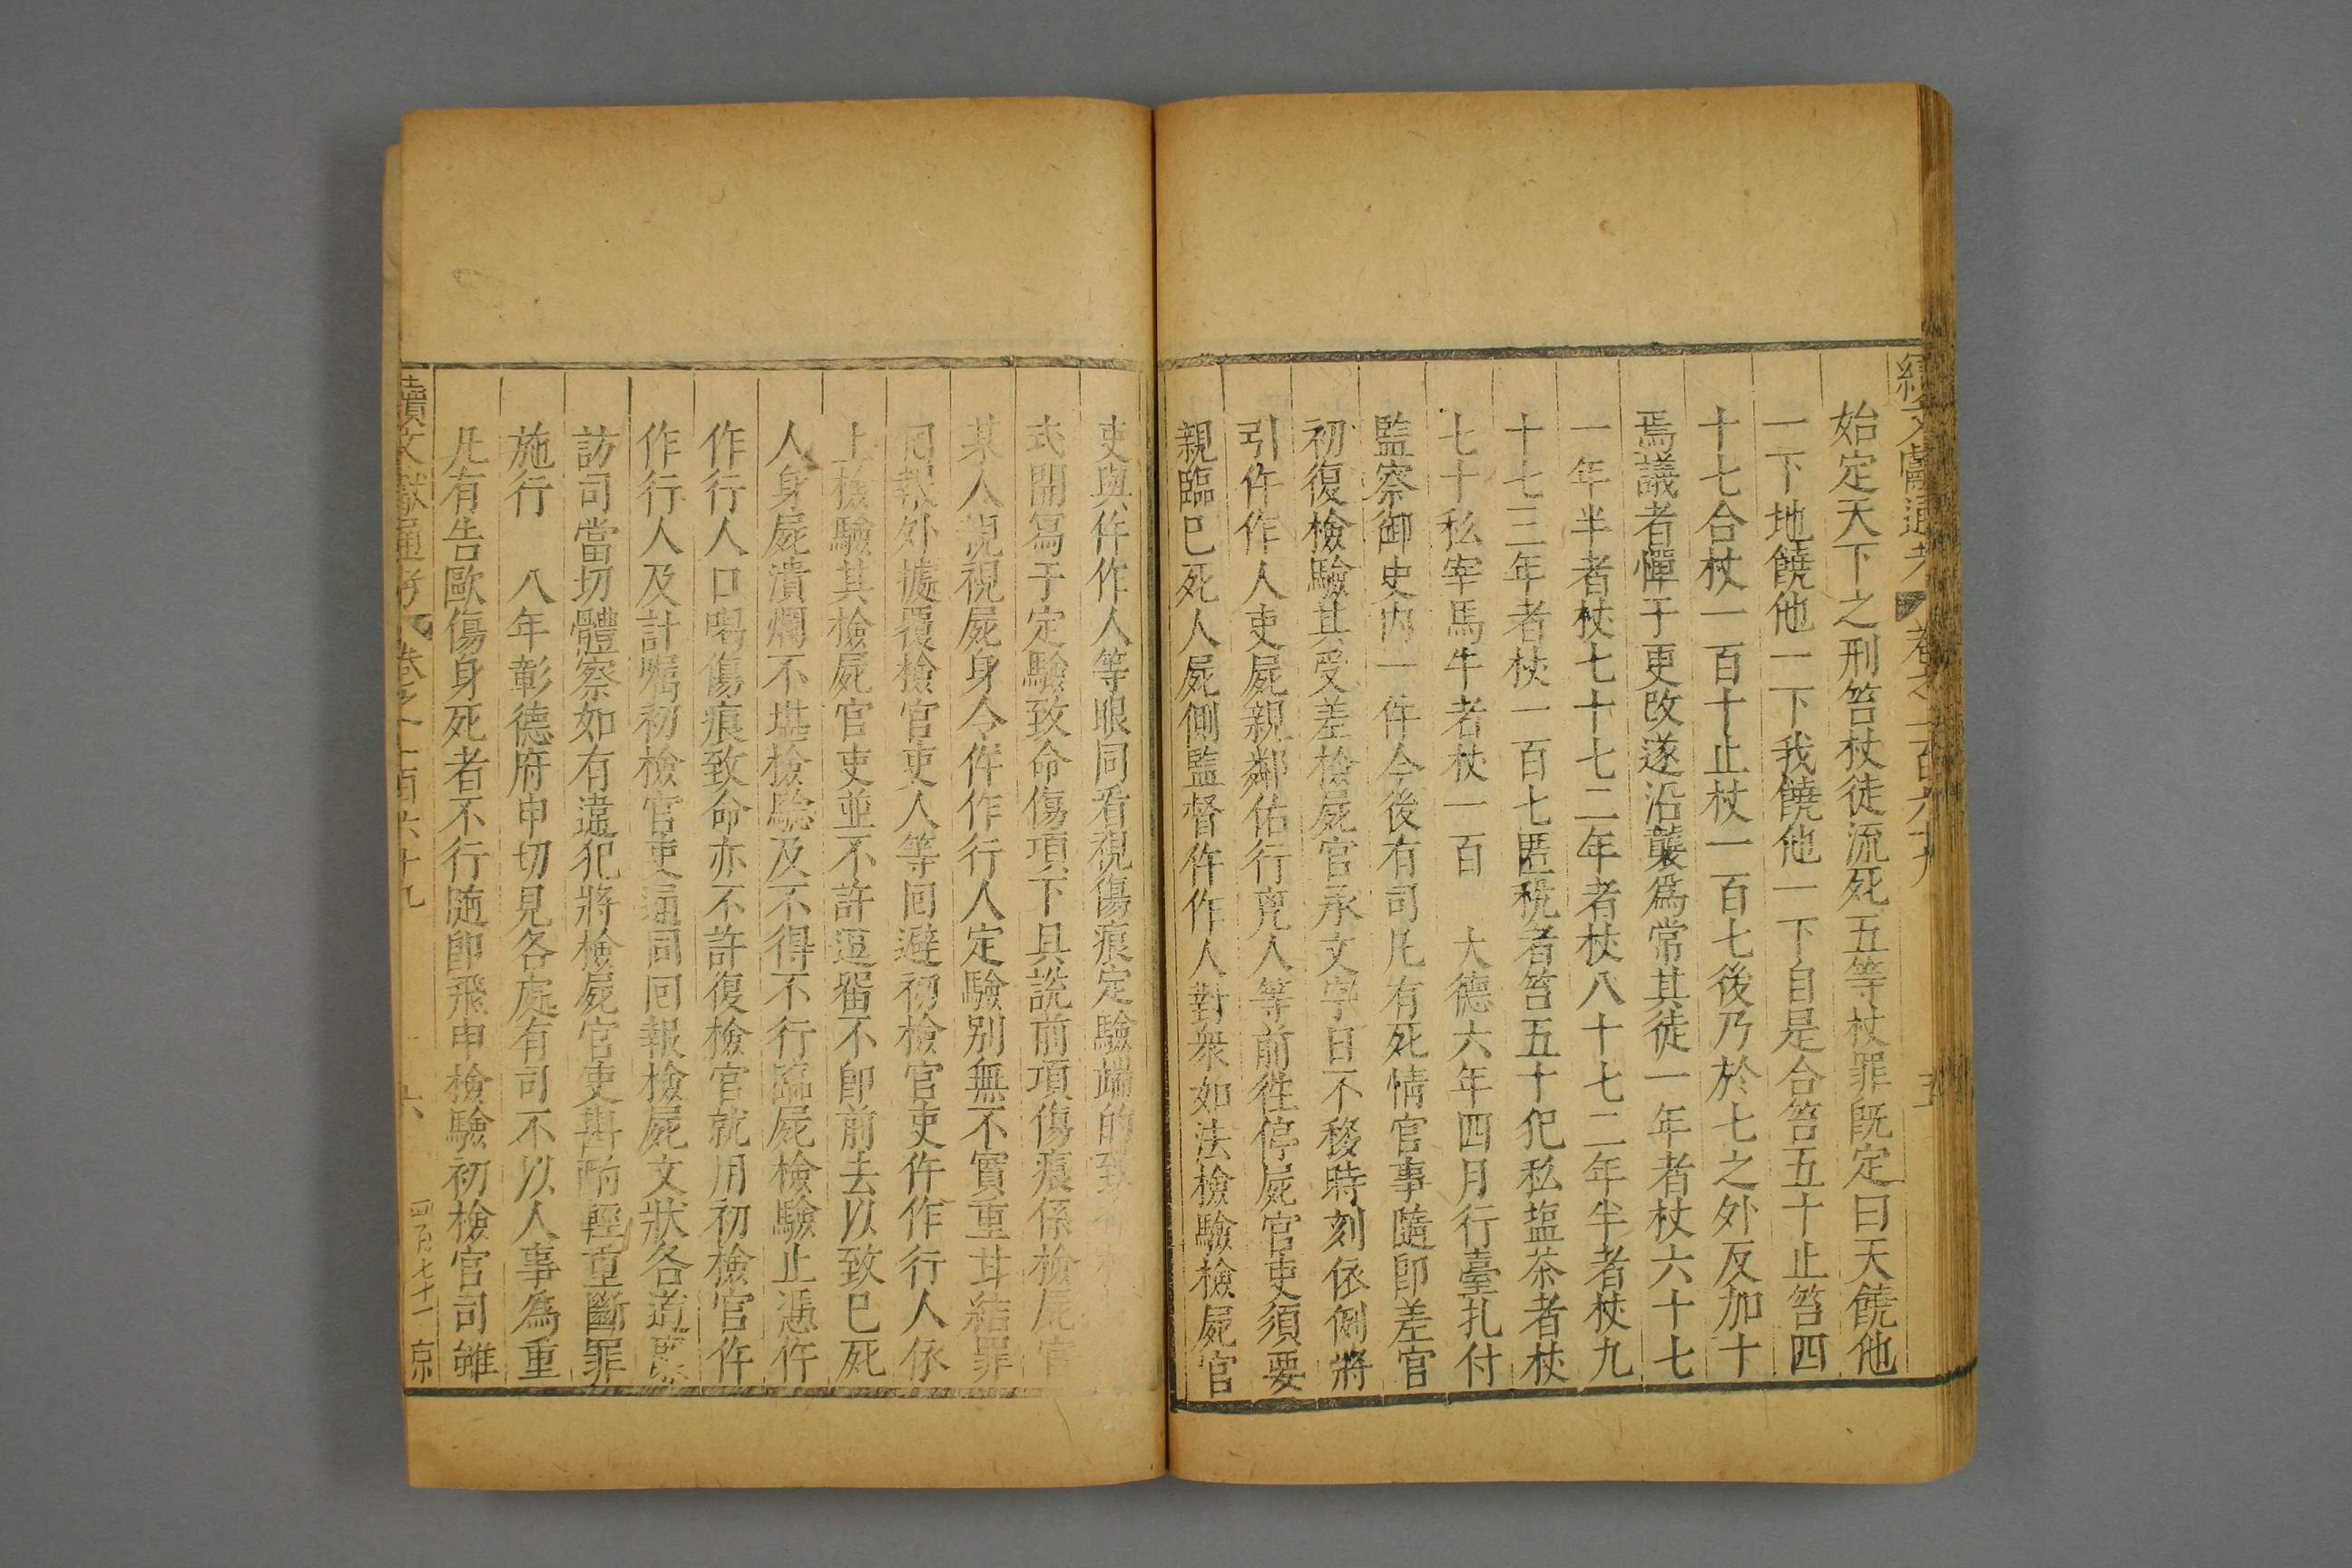 續文獻通考 卷之一百六十九 五
始定天下之刑笞杖徒流死五等杖罪既定曰天饒他
一下地饒他一下我饒他一下自是合笞五十止笞四
十七合杖一百十止杖一百七後乃於七之外反加十
焉議者憚于更改遂沿襲爲常其徒一年者杖六十七
一年半者杖七十七二年者杖八十七二年半者杖九
十七三年者杖一百七匿稅者笞五十犯私塩茶者杖
七十私宰馬牛者杖一百 大德六年四月行臺扎付
監察御史內一件今後有司凡有死情官事隨卽差官
初復檢驗其受差檢屍官承文字日不移時刻依側將
引仵作人吏屍親鄰佑行兇人等前徃停屍官吏須要
親臨巳死人屍側監督仵作人對衆如法檢驗檢屍官
吏與仵作人等眼同看視傷痕定驗端的致
式開寫于定驗致命傷項下具説前項傷痕係檢屍官
某人親視屍身令仵作行人定驗別無不實重甘結罪
囘報外據覆檢官吏人等囘避初檢官吏仵作行人依
上檢驗其檢屍官吏並不許逗遛不卽前去以致巳死
人身屍潰爛不堪檢驗及不得不行臨屍檢驗止憑仵
作行人口喝傷痕致命亦不許復檢官就用初檢官仵
作行人及計囑初檢官吏通同囘報檢屍文狀各道廉
訪司當切體察如有違犯將檢屍官吏斟酌輕重斷罪
施行 八年彰德府申切見各處有司不以人事爲重
凡有告毆傷身死者不行隨卽飛申檢驗初檢官司雖
續文獻通考 卷之一百六十九 六 四百七十一 京